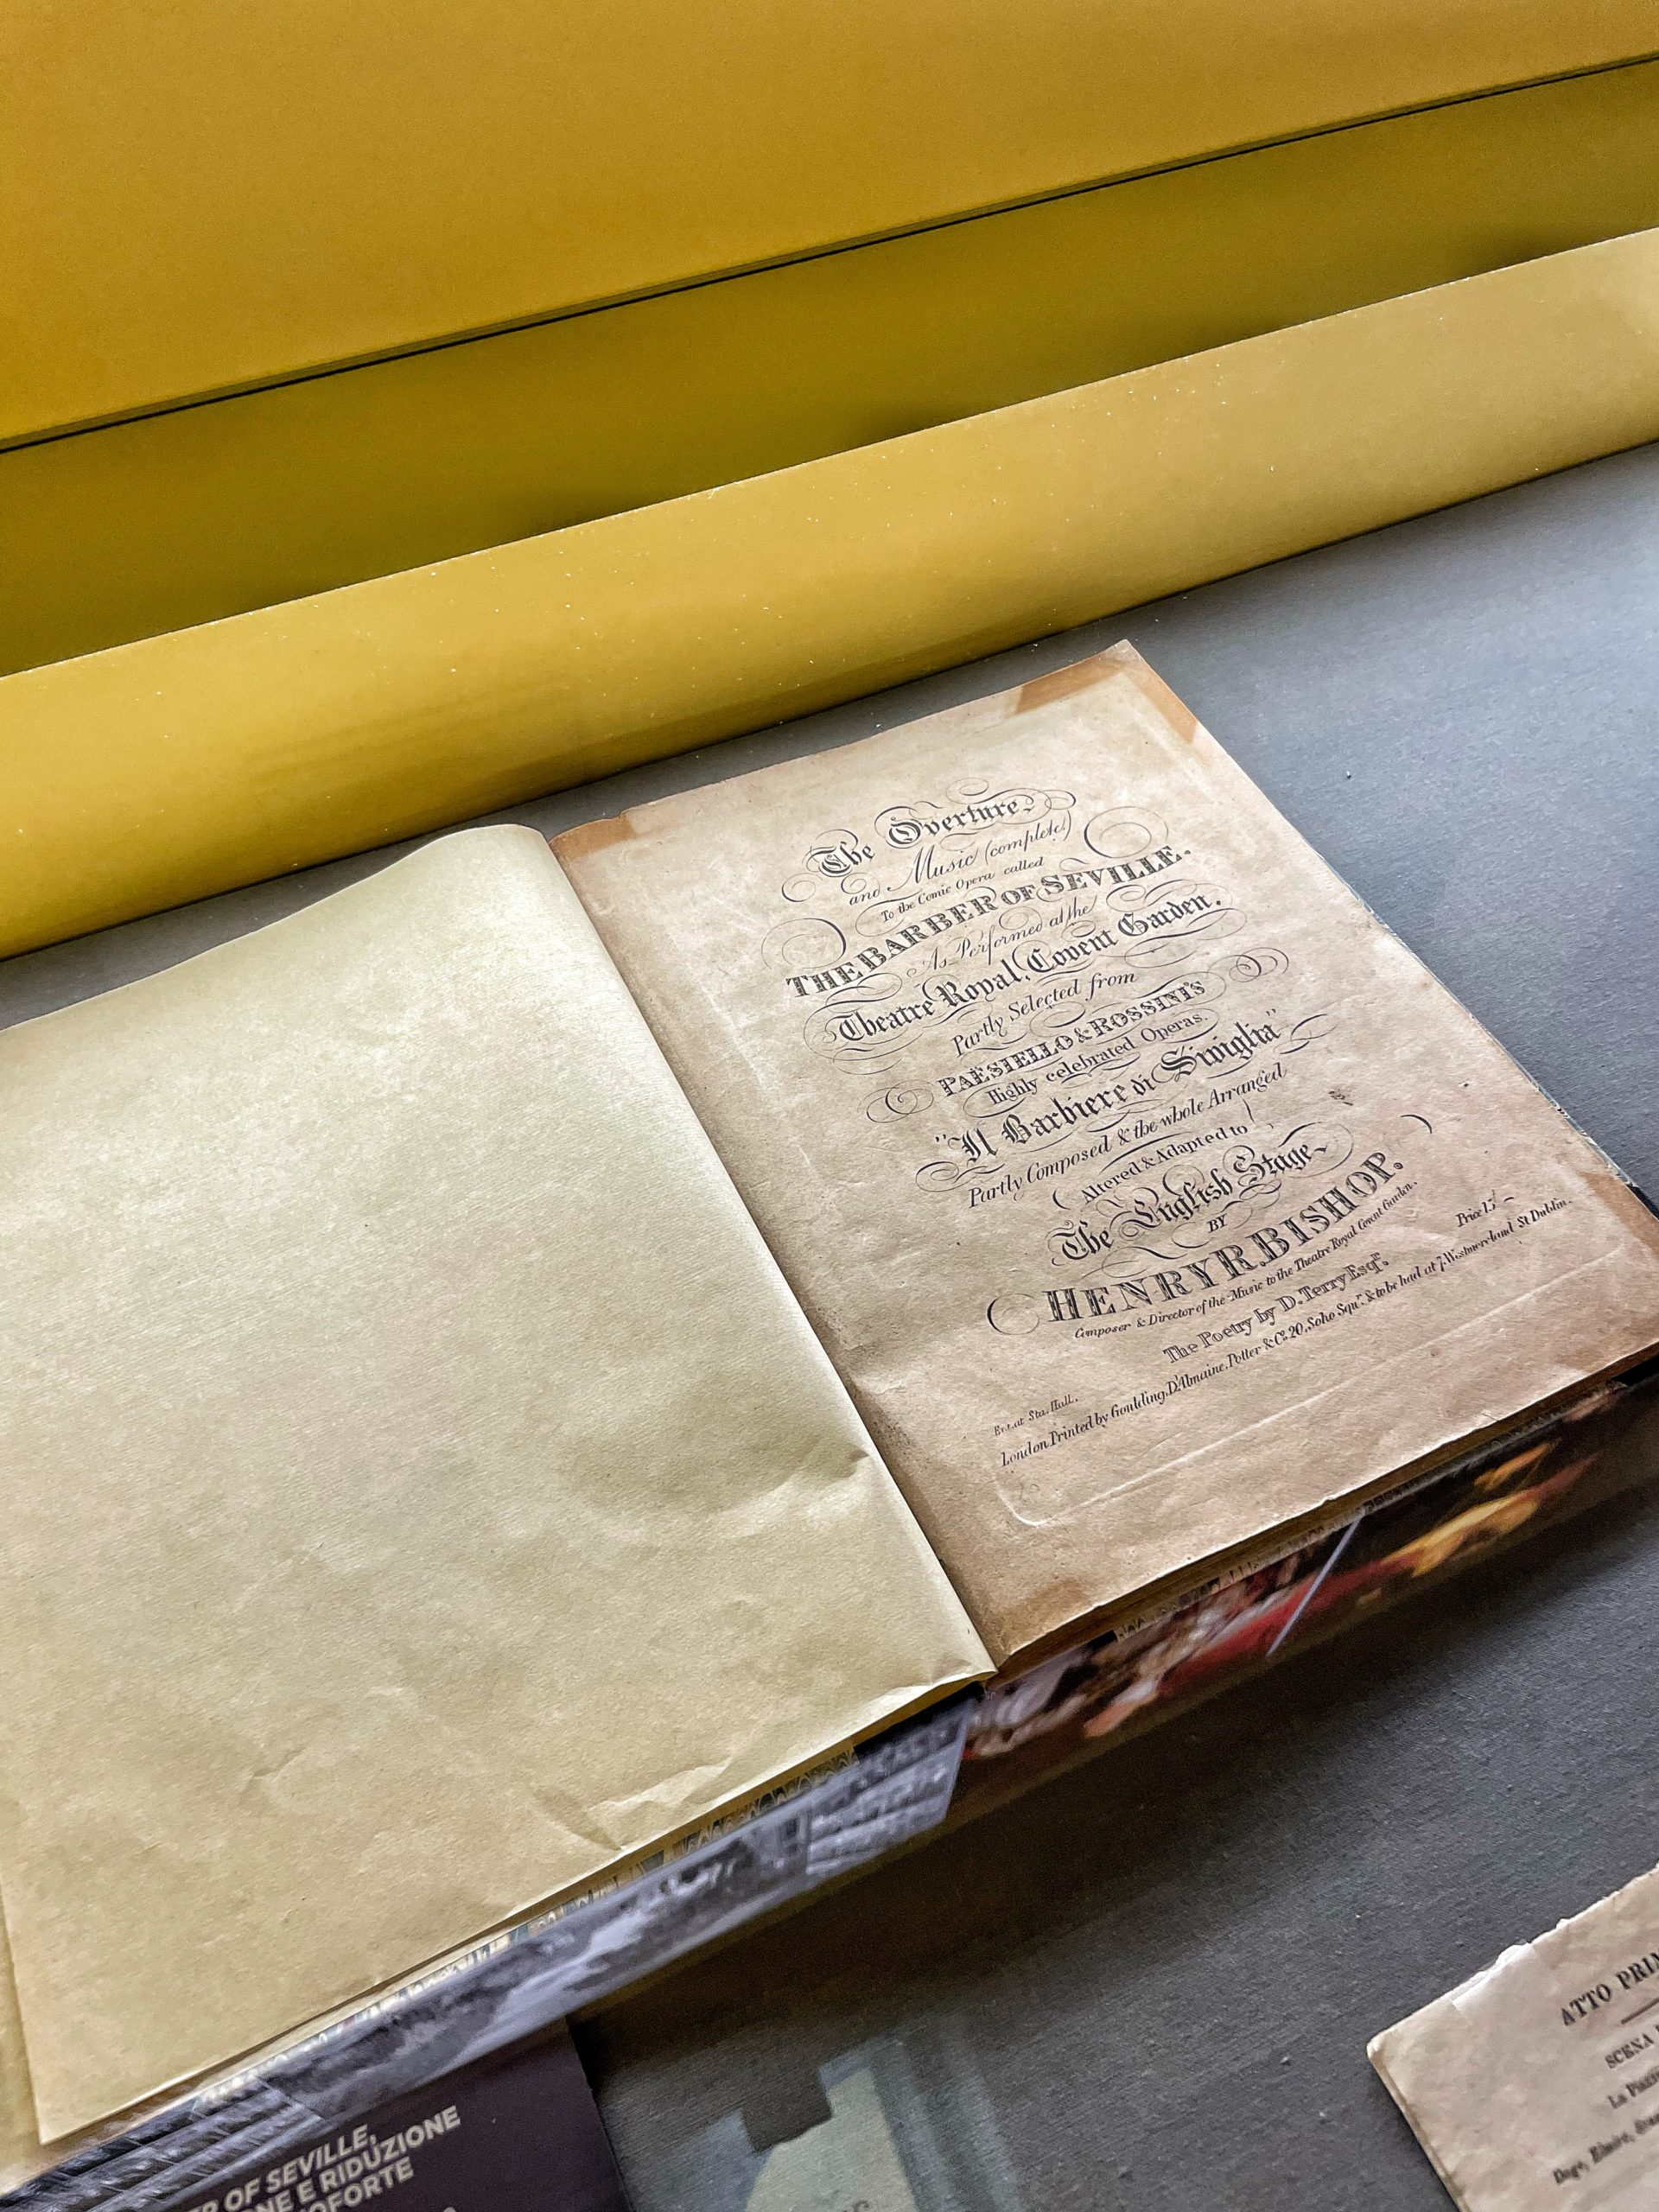 The Overture
and Music (complete)
To the Comic Opera called
THE BARBER OF SEVILLE.
As Performed at the
Theatre Royal, Covent Garden.
Partly Selected from
PAËSIELLO & ROSSINI'S
Highly celebrated Operas.
"Il Barbiere di Siviglia"
Partly Composed & the whole Arranged
Altered & Adapted to
The English Stage
BY
HENRY R. BISHOP.
Composer & Director of the Music to the Theatre Royal Covent Garden.
The Poetry by D. Terry Esqr.
Ent. at Sta. Hall.
Price 15/-
London Printed by Goulding, D'Almaine, Potter & Co. 20, Soho Sqre. & to be had at 7, Westmoreland St Dublin.
OF SEVILLE,
NE E RIDUZIONE
OFORTE
ATTO PRIM
SCENA
La
Doge,